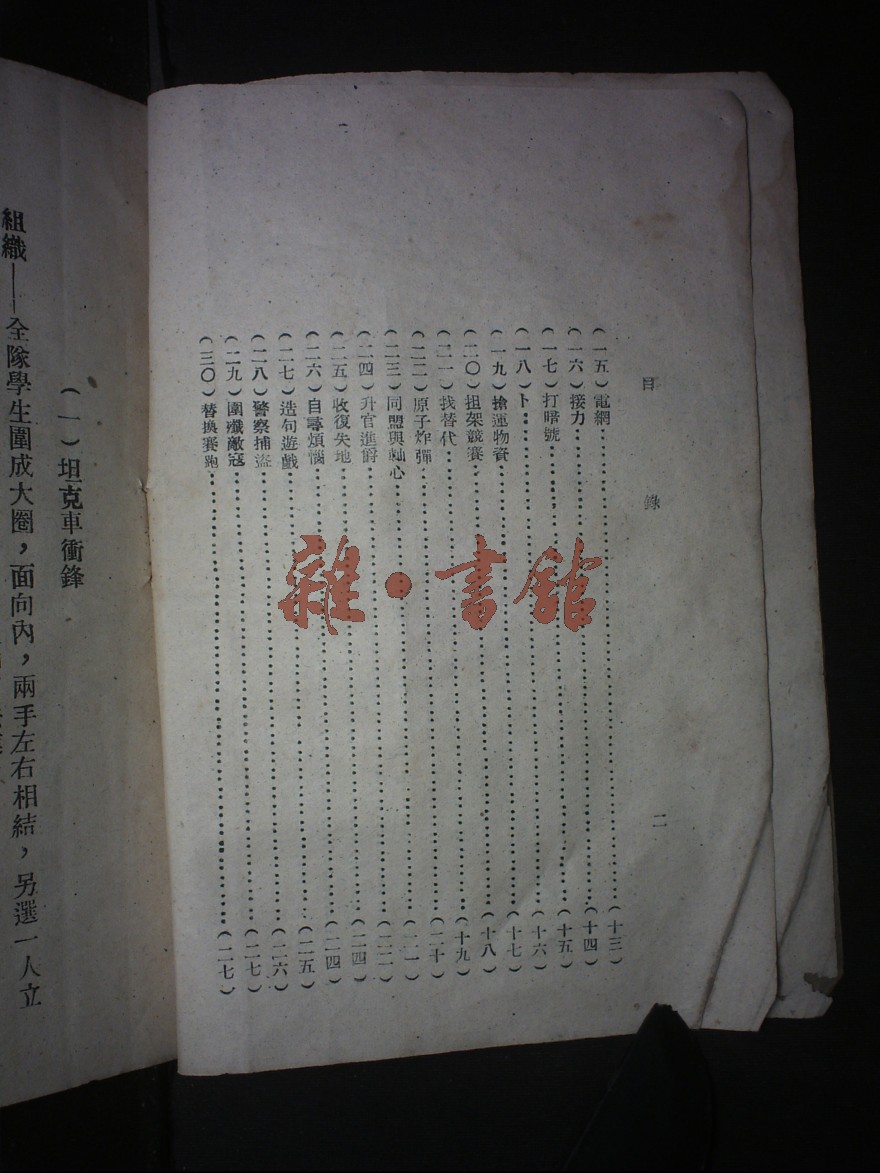 目錄 二
（一五）電網……（十三）
（一六）接力……（十四）
（一七）打暗號……（十五）
（一八）卜……（十六）
（一九）搶運物資……（十七）
（二〇）担架競賽……（十八）
（二一）找替代……（十九）
（二二）原子炸彈……（二十）
（二三）同盟與軸心……（二一）
（二四）升官進爵……（二二）
（二五）收復失地……（二四）
（二六）自尋煩惱……（二四）
（二七）造句遊戲……（二五）
（二八）警察捕盜……（二六）
（二九）圍殲敵寇……（二七）
（三〇）替換賽跑……（二七）
雜·書館
（一）坦克車衝鋒
組織——全隊學生圍成大圈，面向內，兩手左右相結，另選一人立